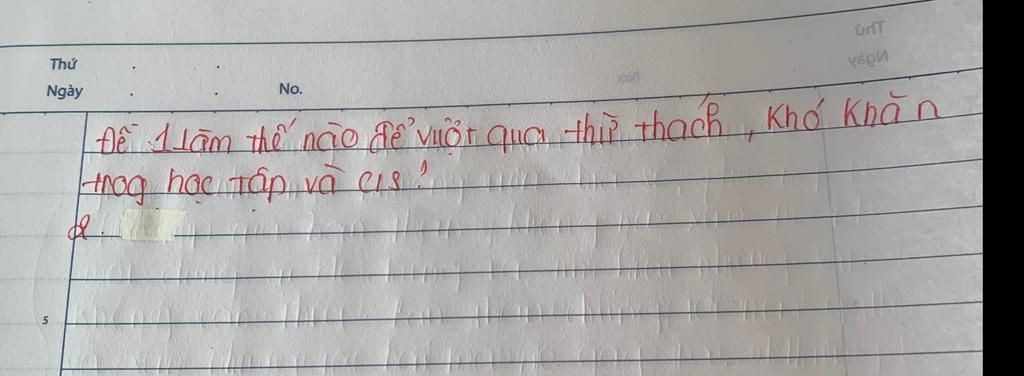 Thứ
Ngày
No.
Thứ
Ngày
No.
Đề 1 Làm thế nào để vượt qua thử thách, khó khăn
trog học tập và c/s?
2.
5